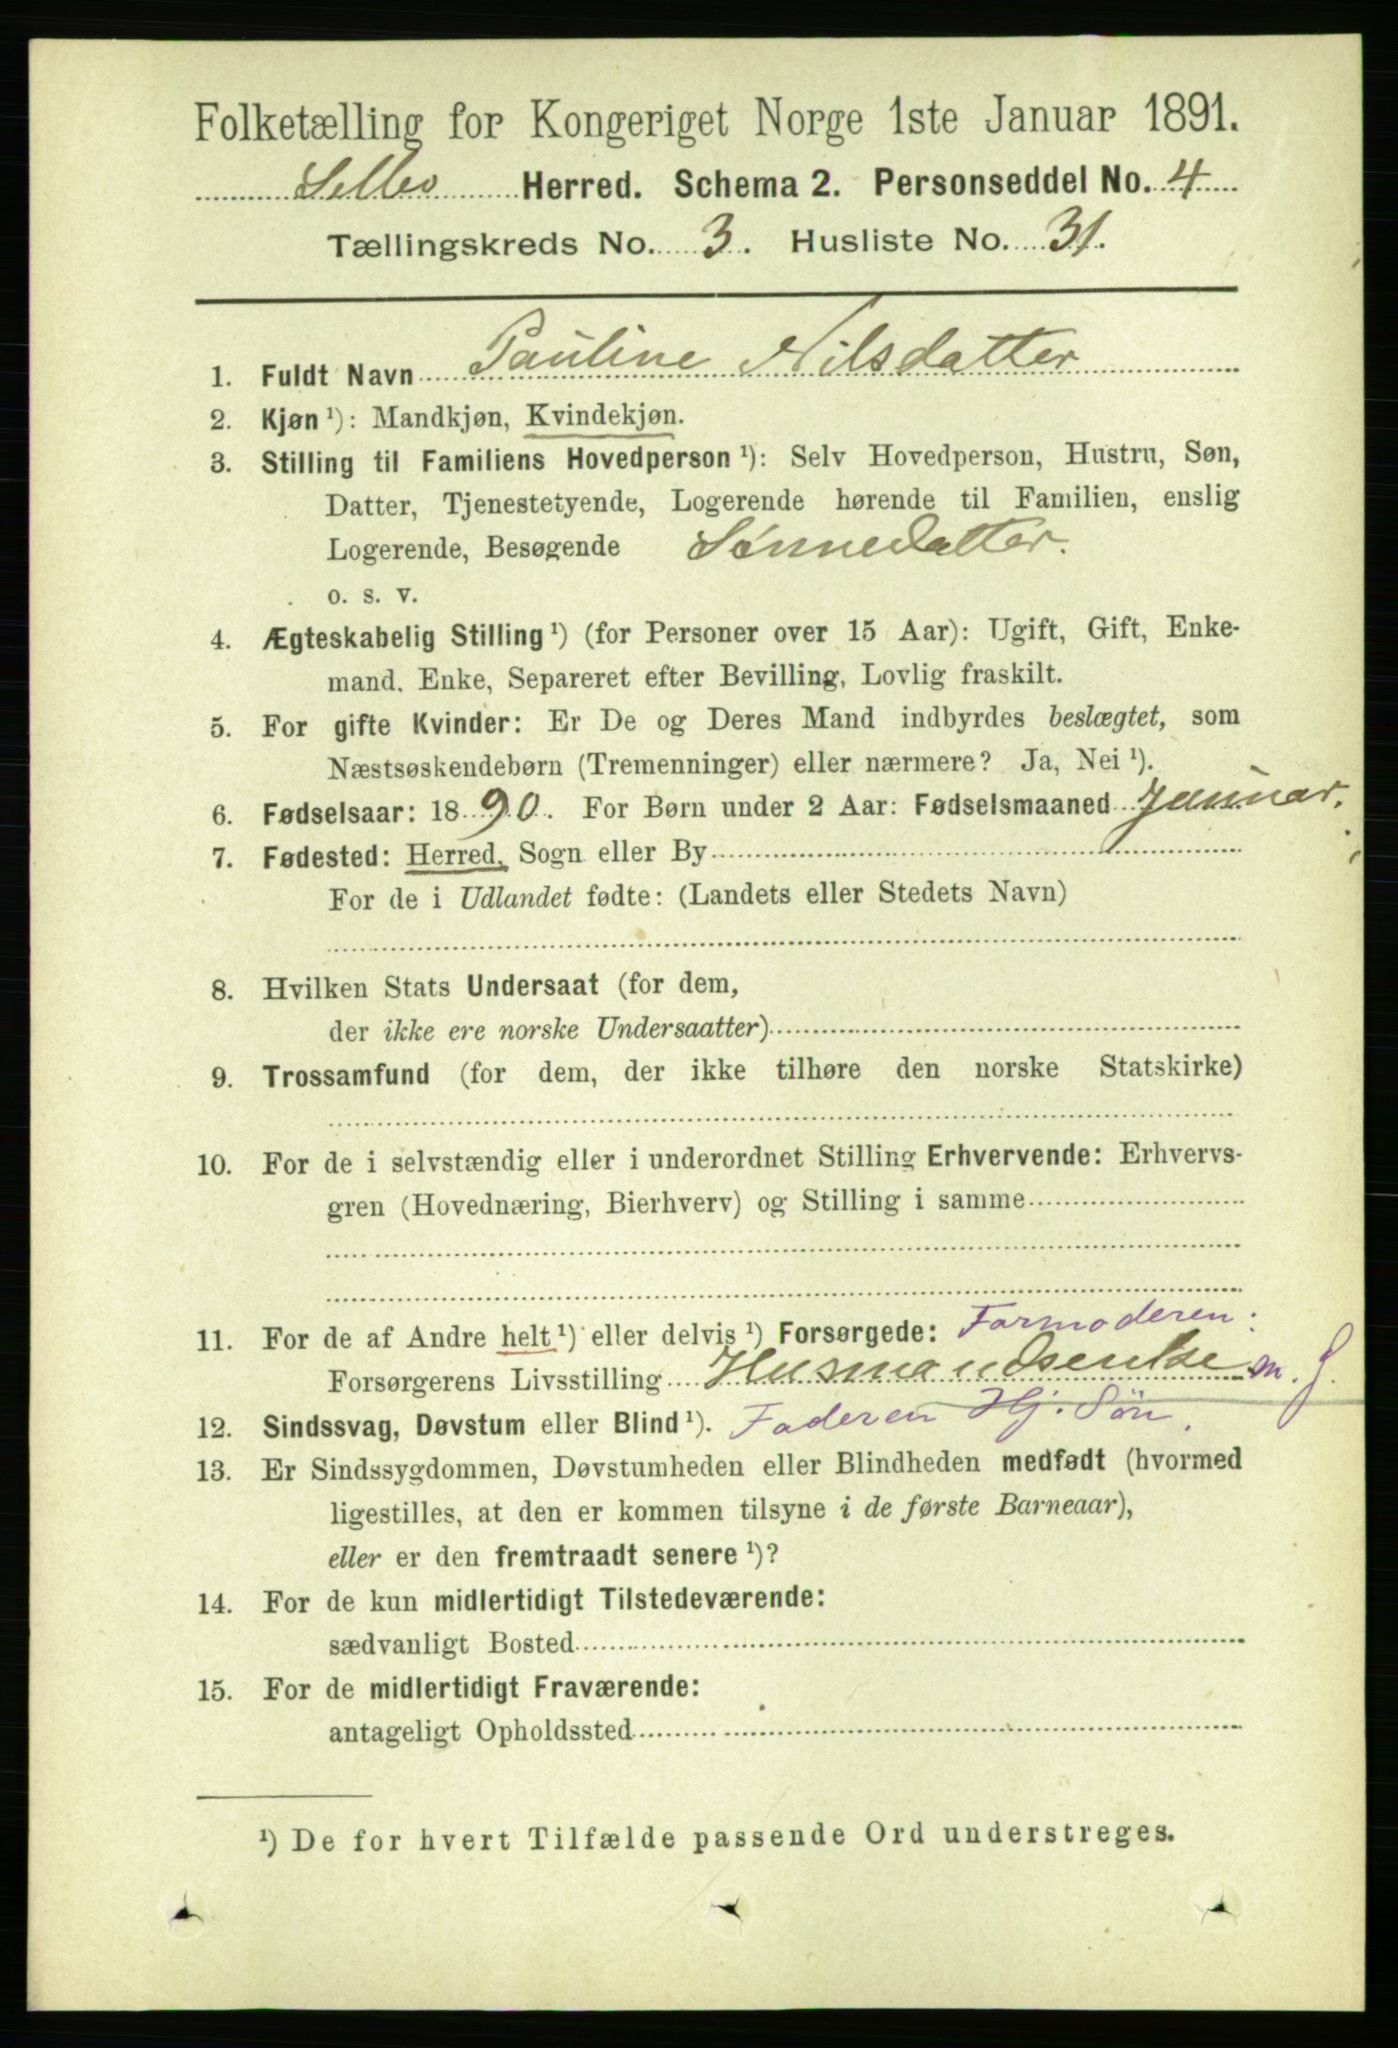 Folketælling for Kongeriget Norge 1ste Januar 1891.
Selbo Herred. Schema 2. Personseddel No. 4
Tællingskreds No. 3. Husliste No. 31.
1. Fuldt Navn Pauline Nilsdatter
2. Kjøn ¹): Mandkjøn, Kvindekjøn.
3. Stilling til Familiens Hovedperson ¹): Selv Hovedperson, Hustru, Søn,
Datter, Tjenestetyende, Logerende hørende til Familien, enslig
Logerende, Besøgende Sønnedatter.
o. s. v.
4. Ægteskabelig Stilling ¹) (for Personer over 15 Aar): Ugift, Gift, Enke-
mand, Enke, Separeret efter Bevilling, Lovlig fraskilt.
5. For gifte Kvinder: Er De og Deres Mand indbyrdes beslægtet, som
Næstsøskendebørn (Tremenninger) eller nærmere? Ja, Nei ¹).
6. Fødselsaar: 1890. For Børn under 2 Aar: Fødselsmaaned Januar.
7. Fødested: Herred, Sogn eller By
For de i Udlandet fødte: (Landets eller Stedets Navn)
8. Hvilken Stats Undersaat (for dem,
der ikke ere norske Undersaatter)
9. Trossamfund (for dem, der ikke tilhøre den norske Statskirke)
10. For de i selvstændig eller i underordnet Stilling Erhvervende: Erhvervs-
gren (Hovednæring, Bierhverv) og Stilling i samme
11. For de af Andre helt ¹) eller delvis ¹) Forsørgede: Farmoderen:
Forsørgerens Livsstilling Husmandsenke m. J.
12. Sindssvag, Døvstum eller Blind ¹). Faderen Hj. Søn.
13. Er Sindssygdommen, Døvstumheden eller Blindheden medfødt (hvormed
ligestilles, at den er kommen tilsyne i de første Barneaar),
eller er den fremtraadt senere ¹)?
14. For de kun midlertidigt Tilstedeværende:
sædvanligt Bosted
15. For de midlertidigt Fraværende:
antageligt Opholdssted
¹) De for hvert Tilfælde passende Ord understreges.